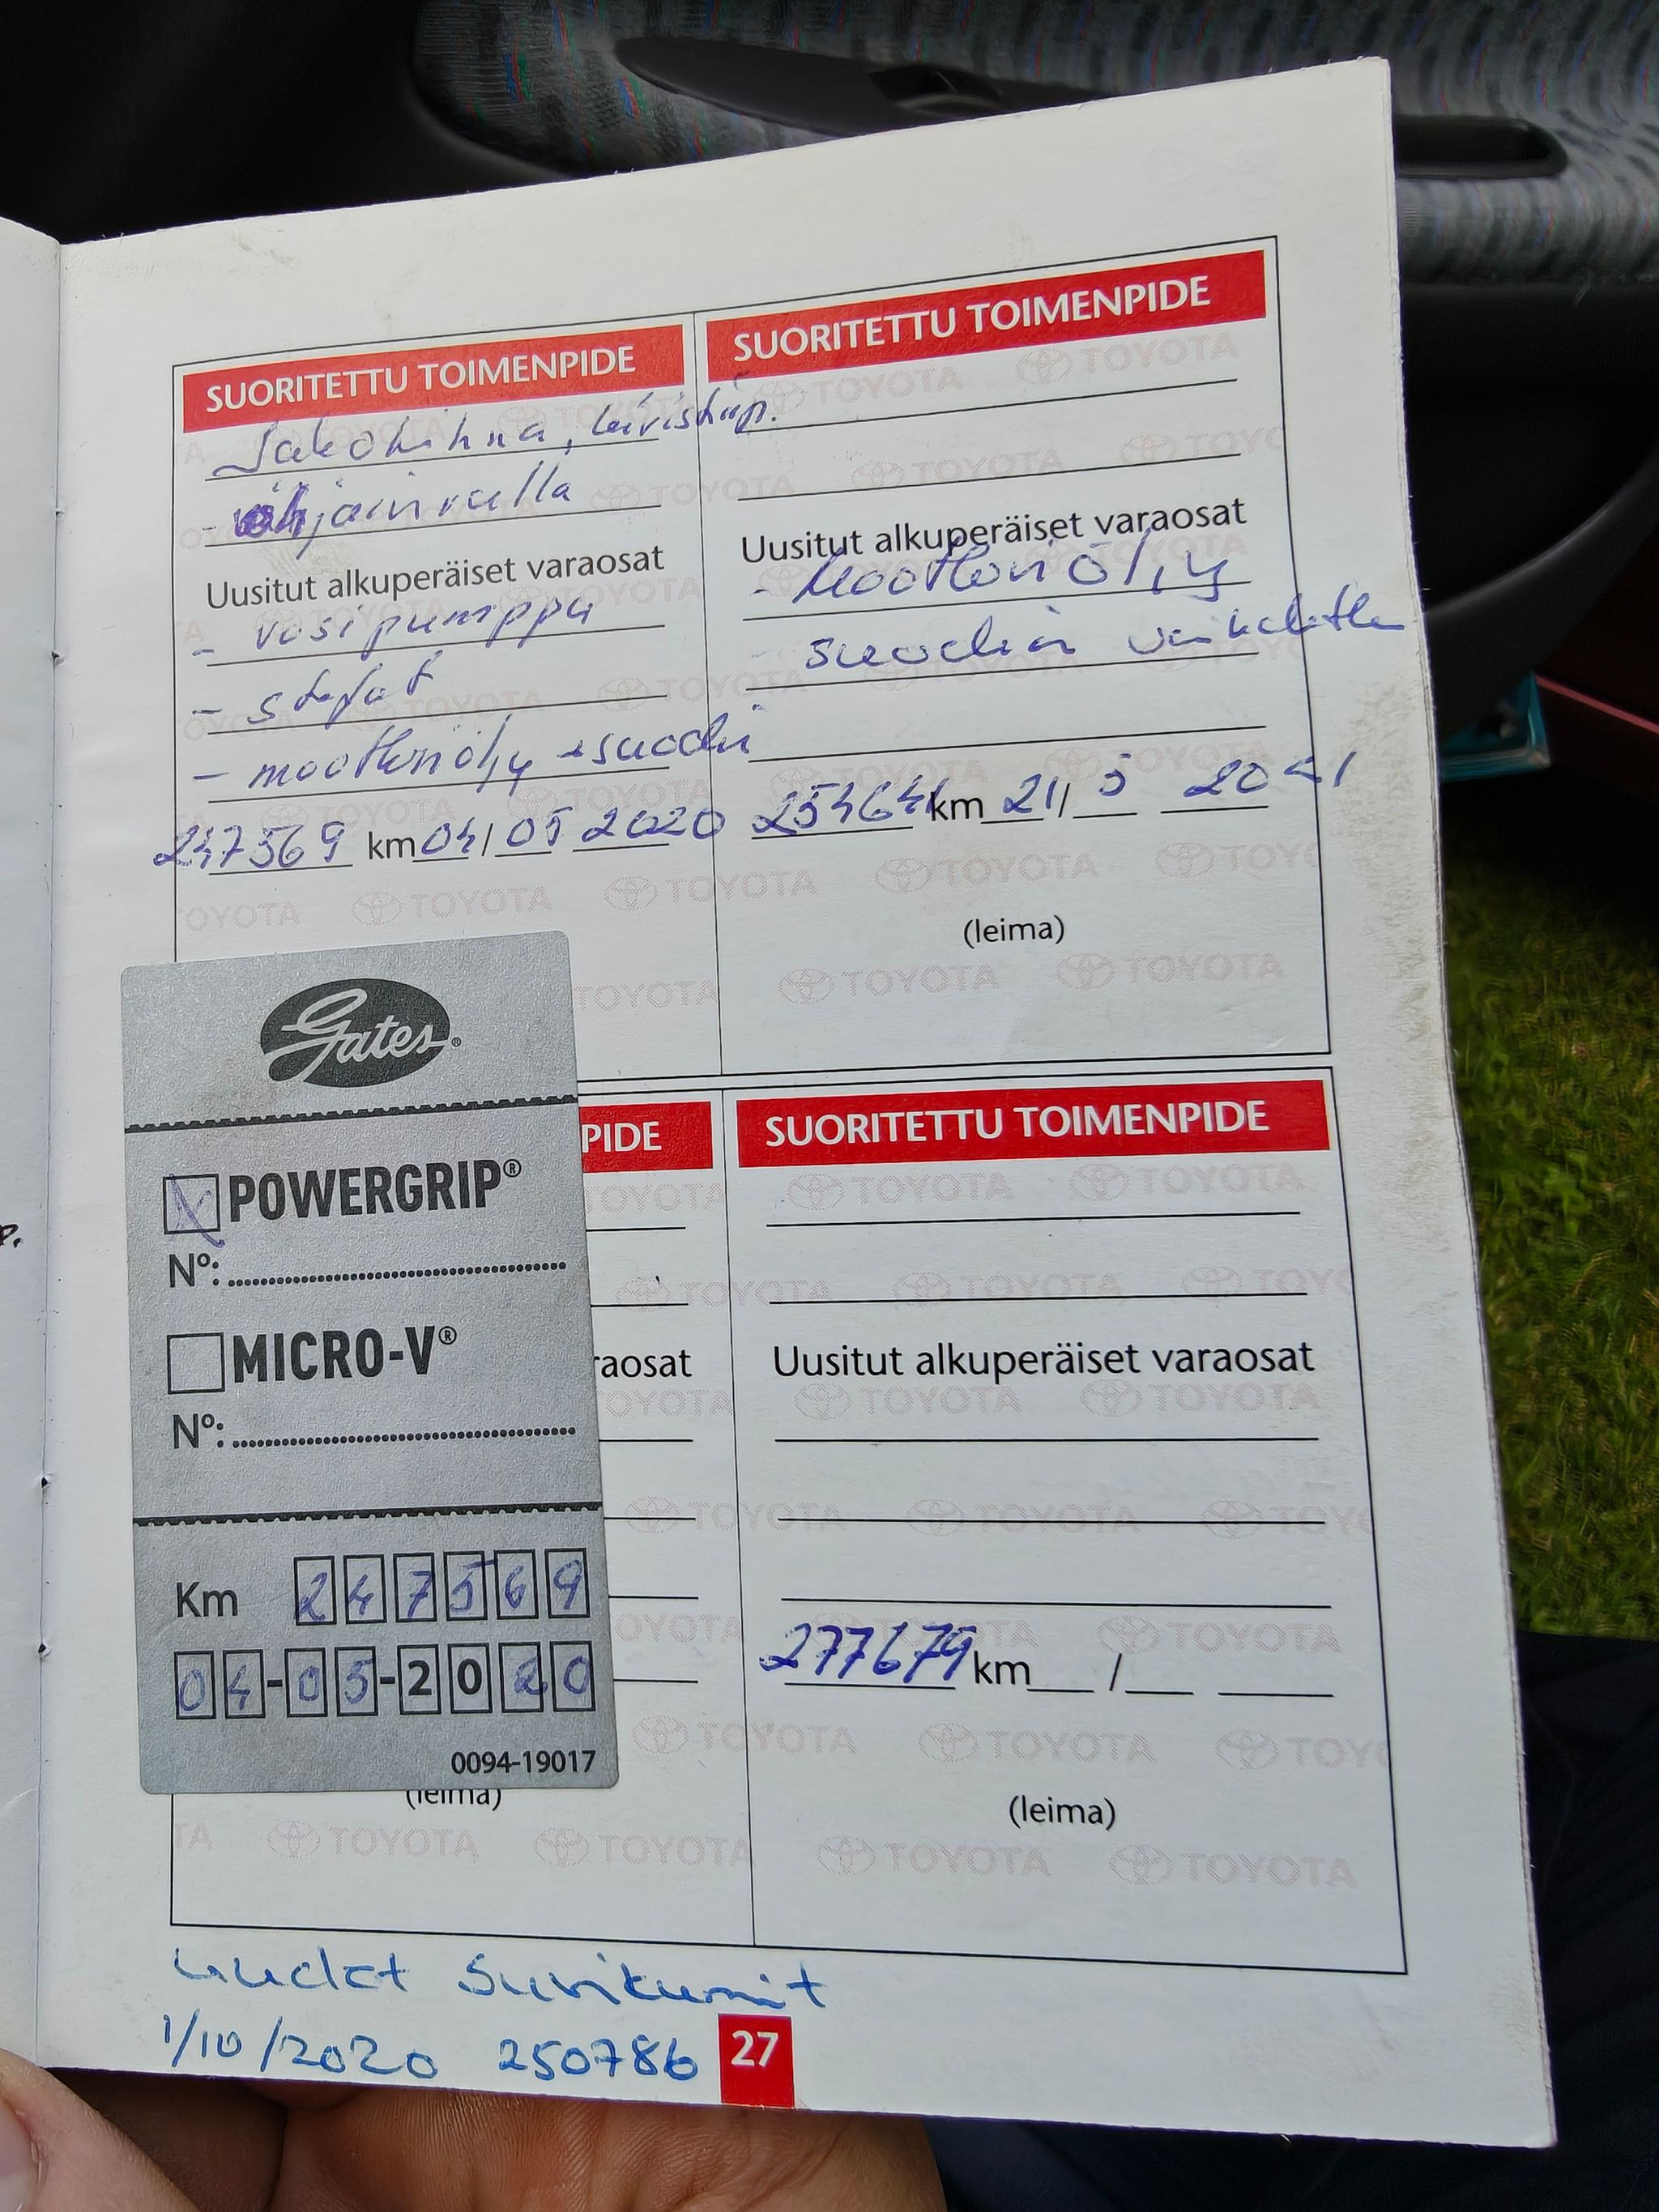 SUORITETTU TOIMENPIDE
Jakohihna, kiristinp.
- ohjainrulla
Uusitut alkuperäiset varaosat
- vesipumppu
- stefat
- moottoriöljy + suodin
247569 km 04/05 2020
SUORITETTU TOIMENPIDE
Uusitut alkuperäiset varaosat
- Moottoriöljy
suodin vaihdettu
254641 km 21/5 2021
(leima)
Gates®
POWERGRIP®
Nº:
MICRO-V®
Nº:
Km 247569
04-05-2020
0094-19017
PIDE
raosat
(leima)
SUORITETTU TOIMENPIDE
Uusitut alkuperäiset varaosat
277679 km / 
(leima)
uudet Suvikumit
1/10/2020 250786
27
P.
TOYOTA